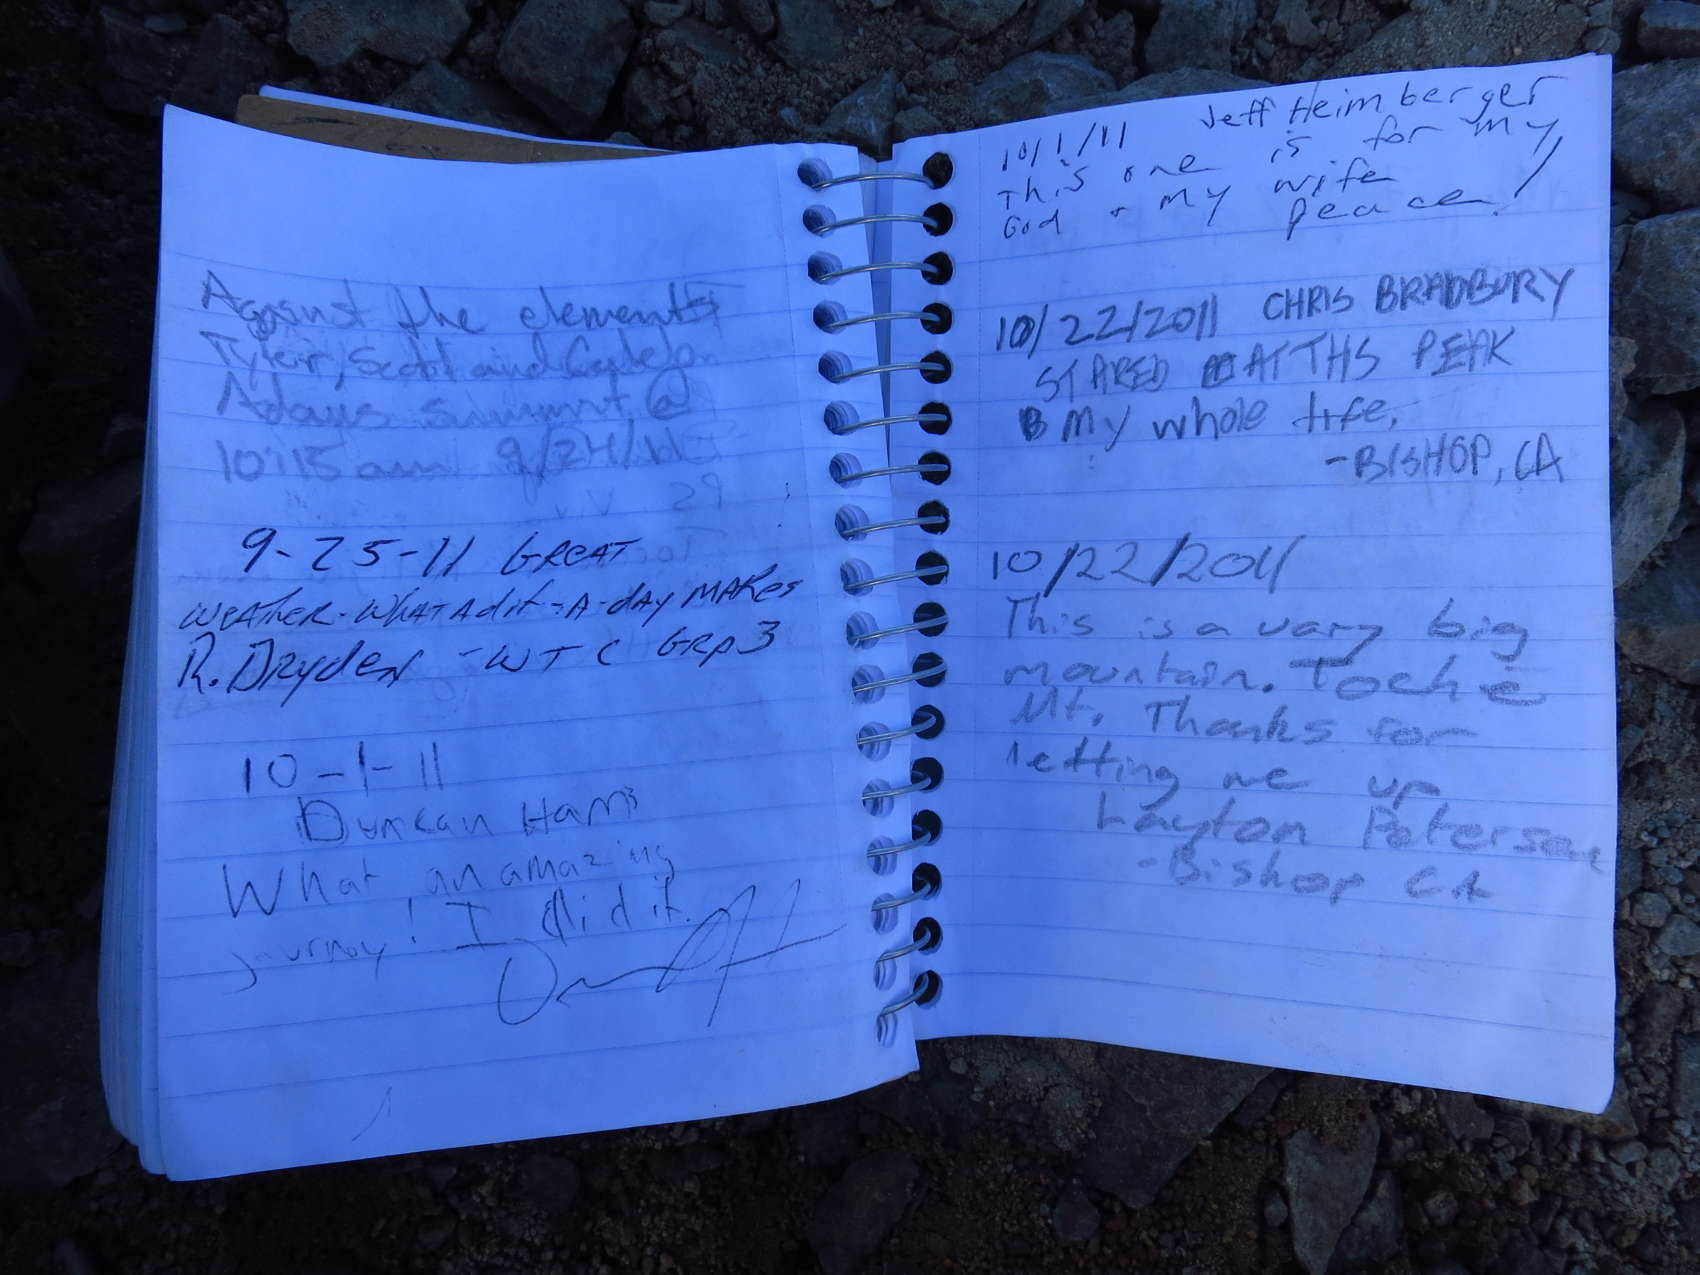 Against the elements
Tyler, Scott and
Adams summit @
10:15 am 9/24/11
9-25-11 GREAT
WEATHER-WHAT A dif-A-dAY MAKES
R. DRYDEN - WTC GRP 3
10-1-11
Duncan Harris
What an amazing
journey! I did it.
10/1/11 Jeff Heimberger
This one is for my
God + my wife
peace!
10/22/2011 CHRIS BRADBURY
STARED AT THS PEAK
My whole life,
-BISHOP, CA
10/22/2011
This is a vary big
mountain. Toche
Mt. Thanks for
letting me up
Layton Peterson
-Bishop CA